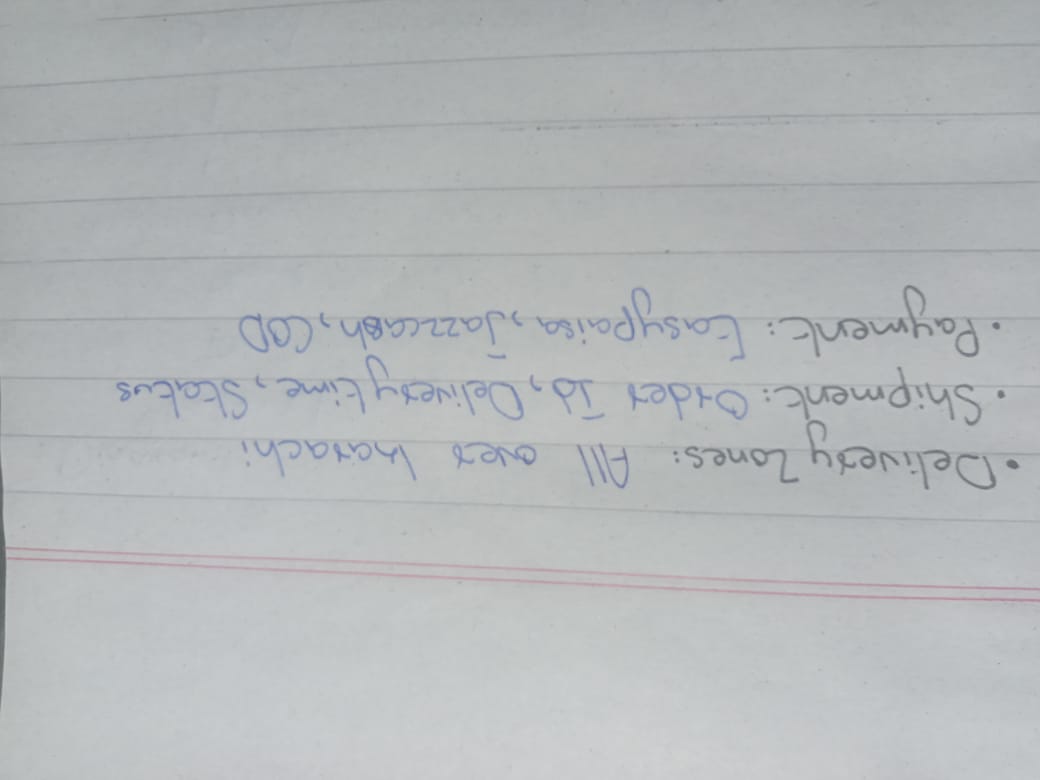 • Delivery Zones: All over karachi
• Shipment: Order Id, Delivery time, Status
• Payment: Easypaisa, Jazzcash, COD